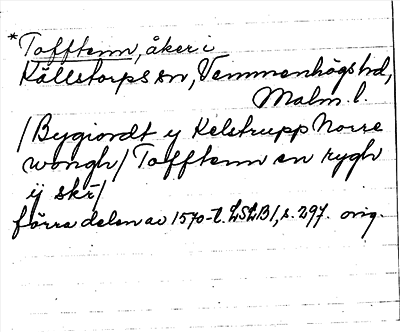 *Tofftenn, åker i
Källstorps sn, Vemmenhögs hd,
Malm. l.
/Bygiordt y Kelstrupp Norre
wongh/ Tofftenn en rygh
ij skr/
förra delen av 1570-t. LSLB1, s. 297. orig.